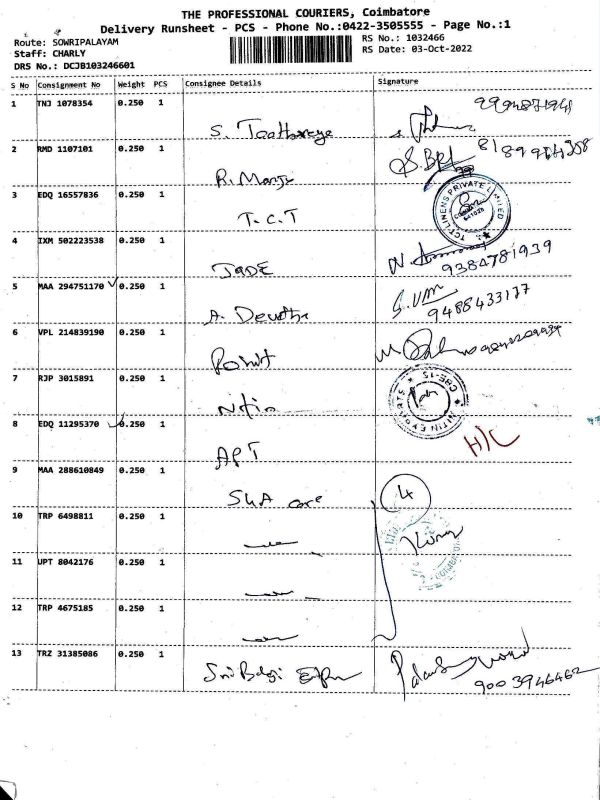 THE PROFESSIONAL COURIERS, Coimbatore
Delivery Runsheet - PCS - Phone No.:0422-3505555 - Page No.:1
Route: SOWRIPALAYAM
RS No.: 1032466
Staff: CHARLY
RS Date: 03-Oct-2022
DRS No.: DCJB103246601
S No Consignment No Weight PCS Consignee Details Signature
1 TNJ 1078354 0.250 1
S.
2 RMD 1107101 0.250 1
R. Manju
3 EDQ 16557836 0.250 1
T.C.T
TCT LINENS PRIVATE LIMITED
4 IXM 502223538 0.250 1
JADE
9384781939
5 MAA 294751170 0.250 1
A.
9488433177
6 VPL 214839190 0.250 1
Rohit
7 RJP 3015891 0.250 1
Nitin
NITIN EXPORTS CBE-15
8 EDQ 11295370 0.250 1
APT
H/C
9 MAA 288610849 0.250 1
SKA care
4
10 TRP 6498811 0.250 1
11 UPT 8042176 0.250 1
12 TRP 4675185 0.250 1
13 TRZ 31385086 0.250 1
9003946462